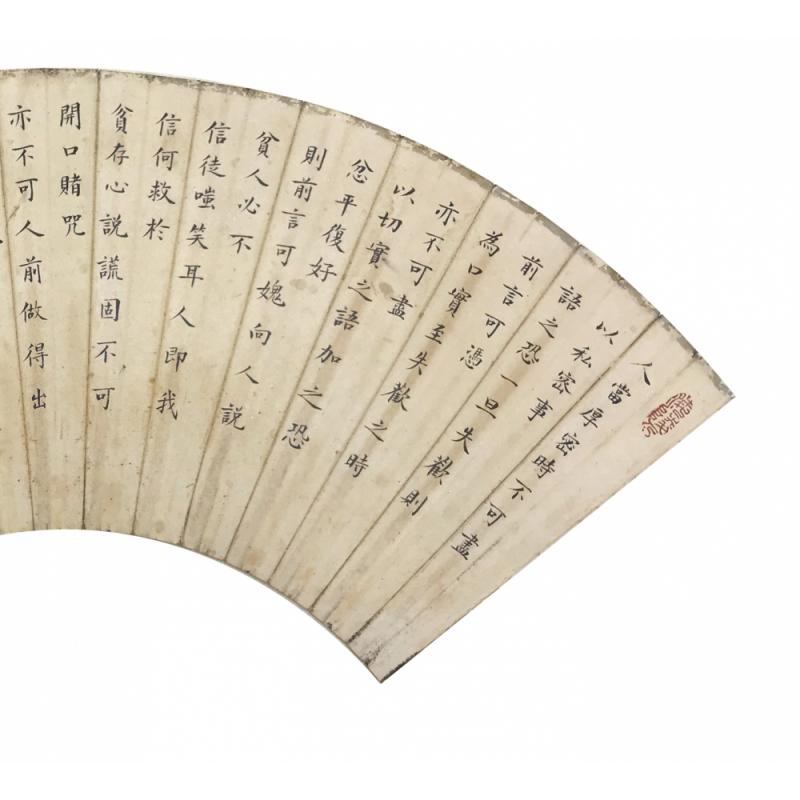 人當厚密時不可盡
以私密事
語之恐一旦失歡則
前言可憑
為口實至失歡之時
亦不可盡
以切實之語加之恐
忿平復好
則前言可愧向人説
貧人必不
信徒嗤笑耳人即我
信何救於
貧存心説謊固不可
開口賭咒
亦不可人前做得出